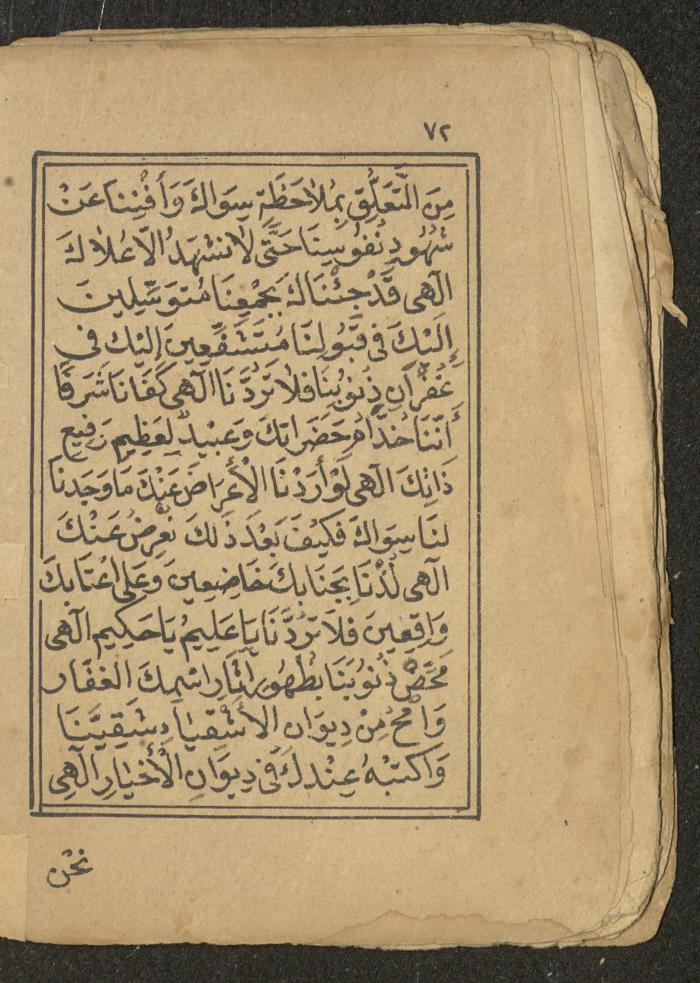 ٧٢
مِنَ التَّعَلُّقِ بِمُلَاحَظَةِ سِوَاكَ وَأَفْنِنَا عَنْ
شُهُودِ نُفُوسِنَا حَتَّى لَا نَشْهَدَ اِلَّا عُلَاكَ
الٓهى قَدْ جِئْنَاكَ بِجَمْعِنَا مُتَوَسِّلِينَ
إِلَيْكَ فِى قَبُولِنَا مُتَشَفِّعِينَ إِلَيْكَ فى
غُفْرَانِ ذُنُوبِنَا فَلَا تَرُدَّنَا الٓهى كَفَانَا شَرَفًا
أَنَّنَا خُدَّامُ حَضَرَاتِكَ وَعَبِيدٌ لِعَظِيمِ رَفِيعِ
ذَاتِكَ الٓهى لَوْ أَرَدْنَا الْأَعْرَاضَ عَنْكَ مَا وَجَدْنَا
لَنَا سِوَاكَ فَكَيْفَ بَعْدَ ذَلِكَ نُعْرِضُ عَنْكَ
الٓهى لُذْنَا بِجَنَابِكَ خَاضِعِينَ وَعَلَى اعْتَابِكَ
وَاقِعِينَ فَلَا تَرُدَّنَا يَا عَلِيمُ يَا حَكِيمُ الٓهى
مَحِّصْ ذُنُوبَنَا بِظُهُورِ اٰثَارِ اسْمِكَ الغَفَّار
وَامْحُ مِنْ دِيوَانِ الأَشْقِيَاءِ شَقِيَّنَا
وَاكْتُبْهُ عِنْدَكَ فِى دِيوَانِ الْأَخْيَارِ الٓهِى
نَحْن